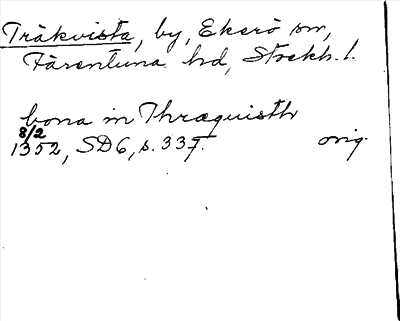 Träkvista, by, Ekerö sn,
Färentuna hd, Stockh. l.
bona in Thræquisth
8/2
1352, SD6, s. 337. orig.